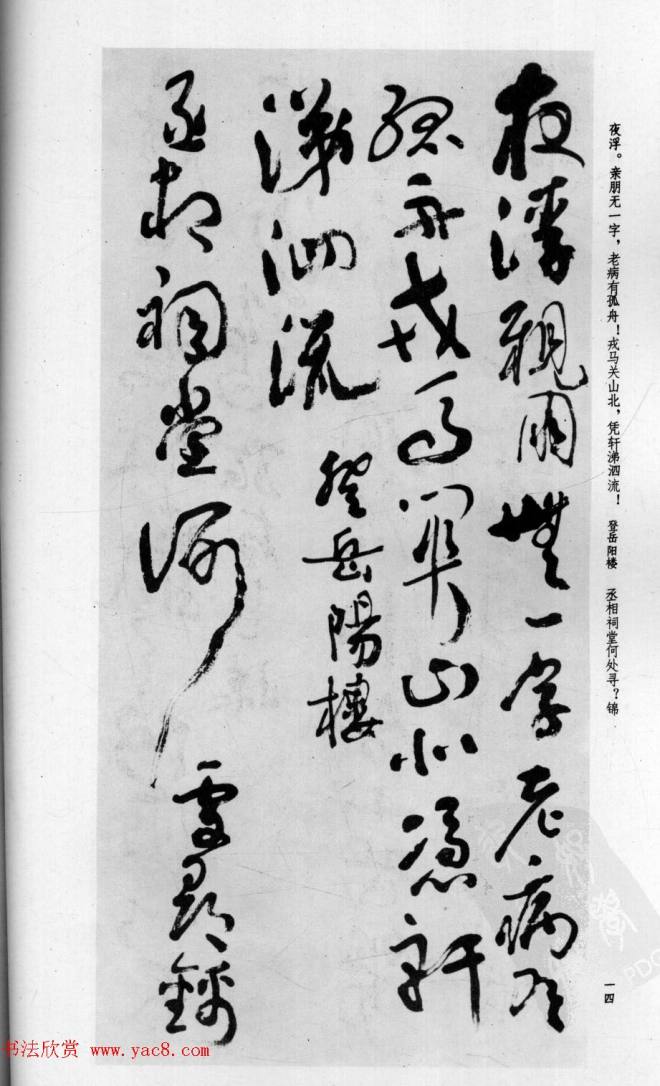 夜浮。亲朋无一字，老病有孤舟！戎马关山北，凭轩涕泗流！ 登岳阳楼 丞相祠堂何处寻？锦
夜浮親朋無一字老病有
孤舟戎馬關山北憑軒
涕泗流 登岳陽樓
丞相祠堂何處尋錦
一四
书法欣赏 www.yac8.com
PDG